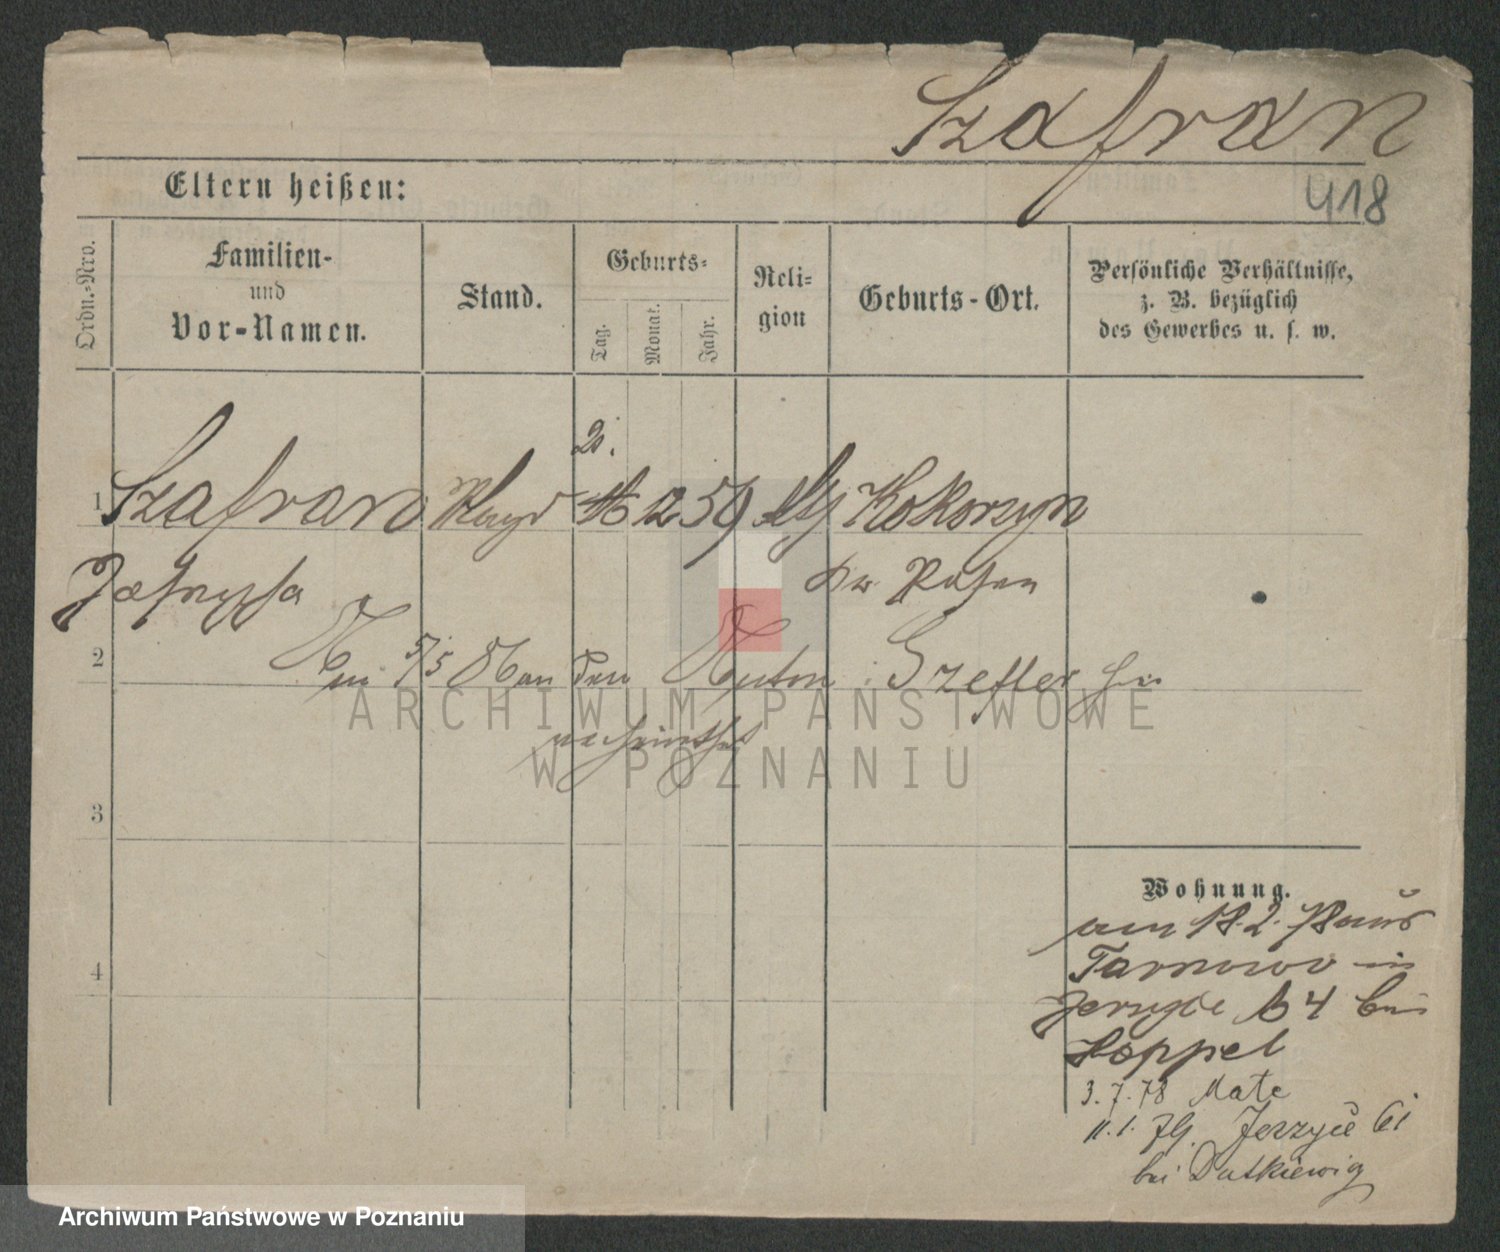 Szafran
418
Eltern heißen:
Ordn.-Nro.
Familien-
und
Vor-Namen.
Stand.
Geburts-
Tag.
Monat.
Jahr.
Reli-
gion
Geburts-Ort.
Persönliche Verhältnisse,
z. B. bezüglich
des Gewerbes u. s. w.
2.
1 Szafran Magd 12 59 Kokorzyn
Kr. Posen
2
Am 5/5 86 an den Anton Szefler hier
verheirathet
3
Wohnung.
am 18.2.78 aus
Tarnowo in
Jerzyce 4 bei
Hoppel
4
3.7.78 Mate
11.1.79. Jerzyce 61
bei Dutkiewicz
ARCHIWUM PAŃSTWOWE
W POZNANIU
Archiwum Państwowe w Poznaniu